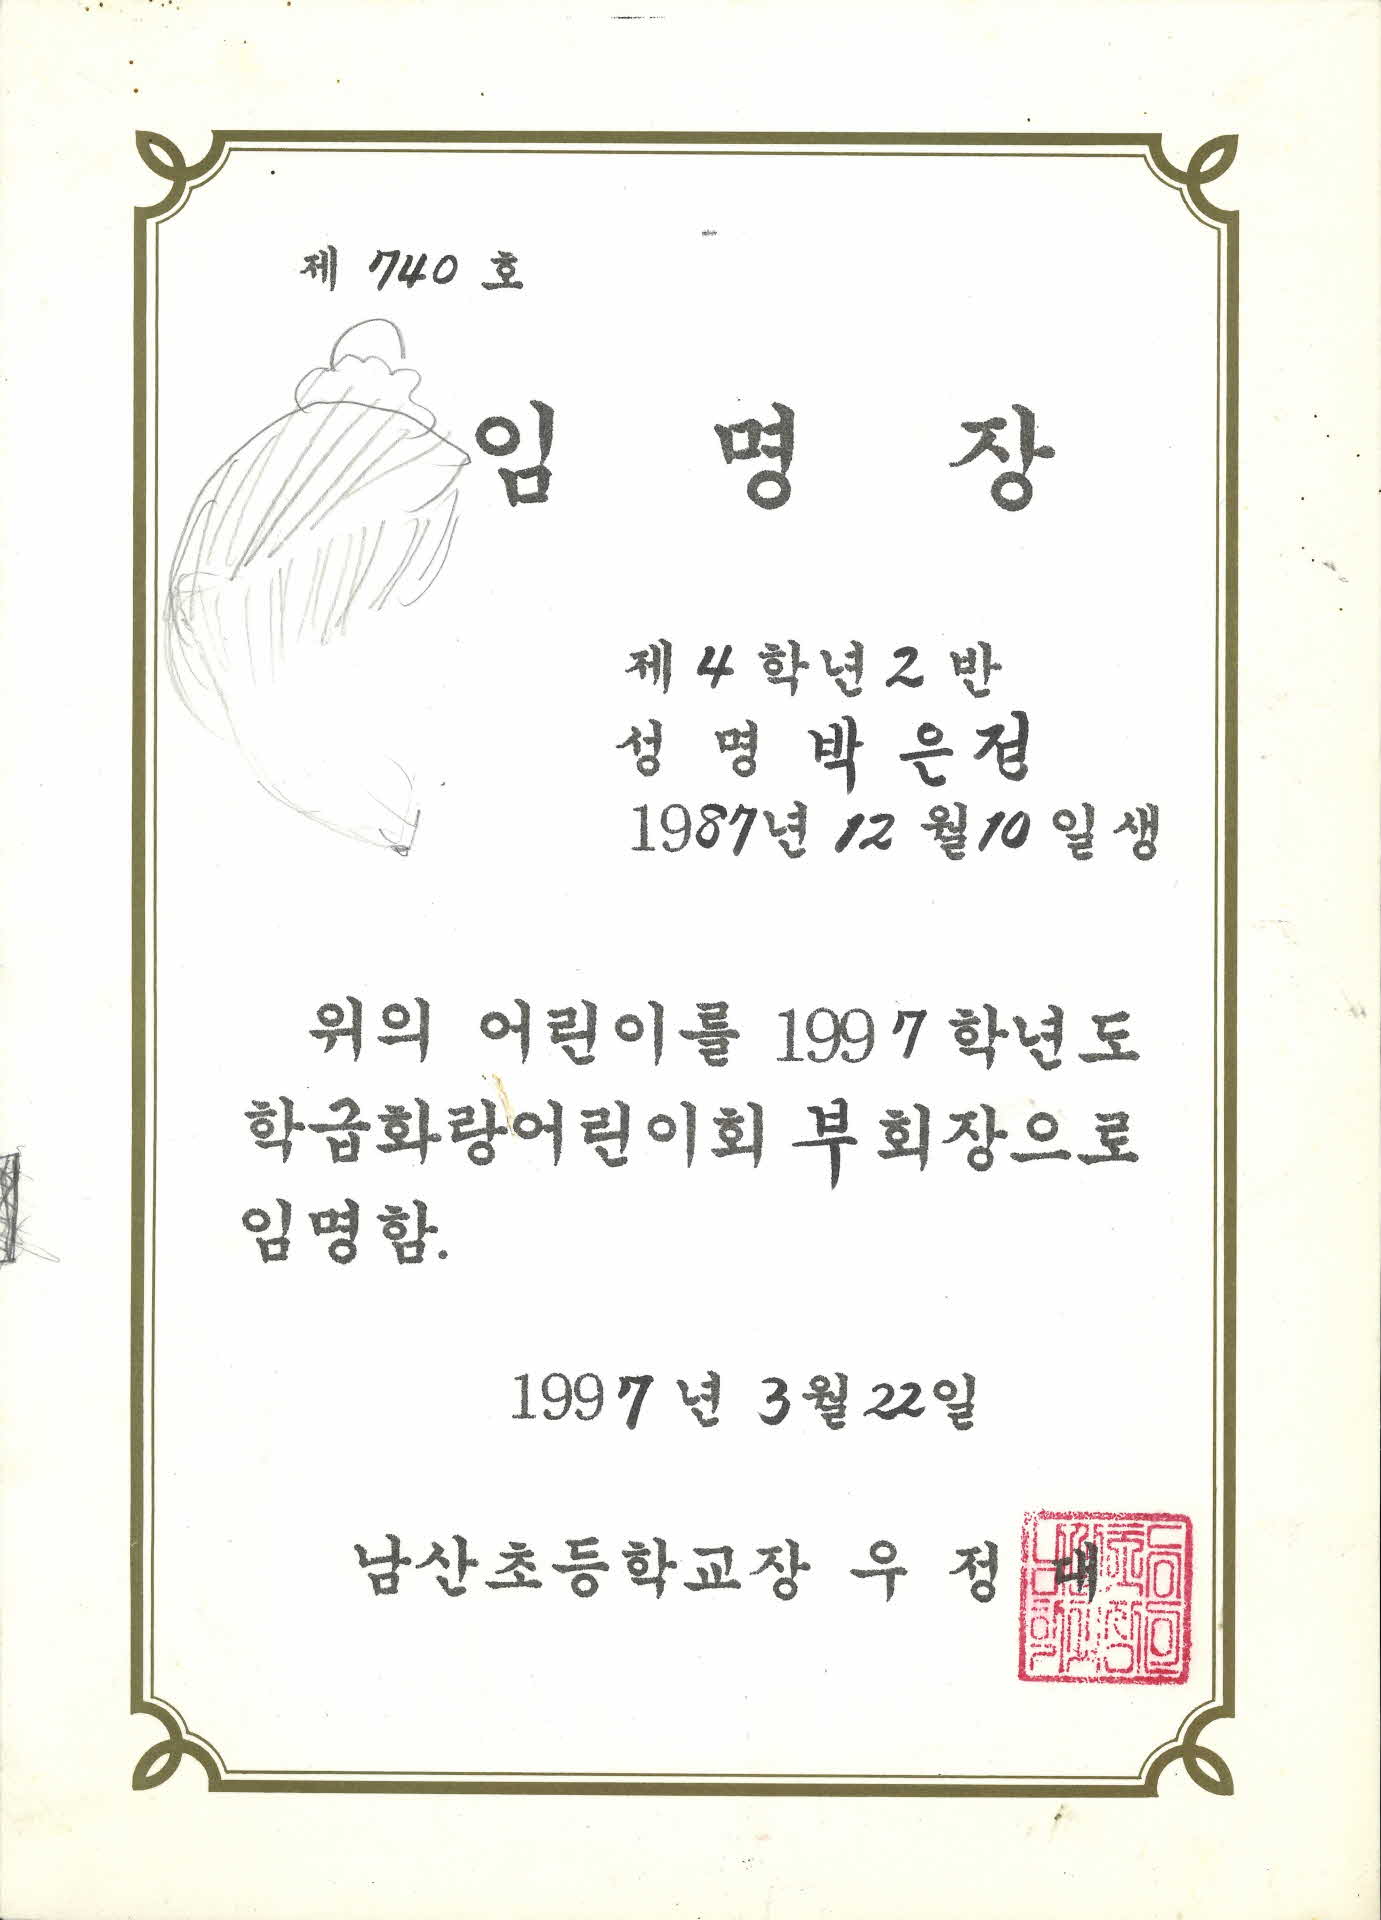 제 740 호
임 명 장
제 4 학년 2 반
성 명 박 은 정
1987년 12 월 10 일생
위의 어린이를 1997 학년도
학급화랑어린이회 부 회장으로
임명함.
1997 년 3월 22일
남산초등학교장 우 정 대